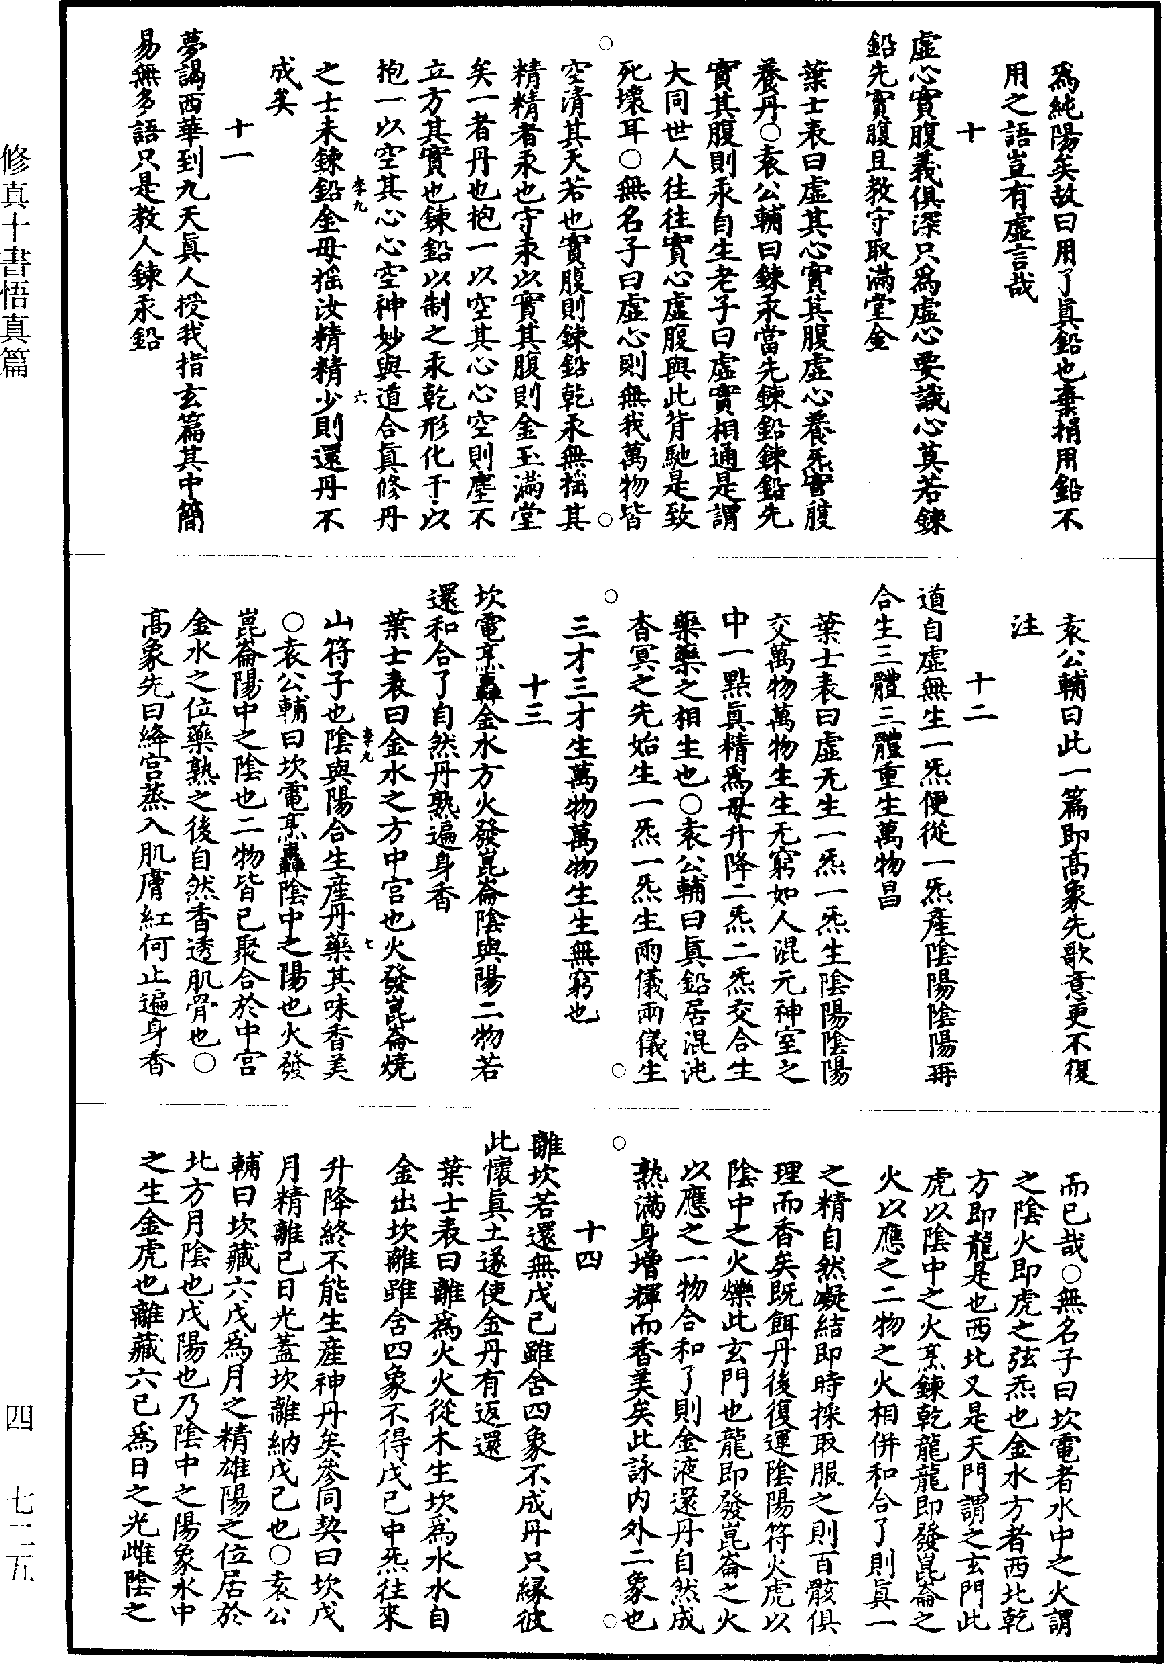 爲純陽矣故曰用了眞鉛也棄捐用鉛不
用之語豈有虛言哉
十
虛心實腹義俱深只爲虛心要識心莫若鍊
鉛先實腹且教守取滿堂金
葉士表曰虛其心實其腹虛心養炁實腹
養丹○袁公輔曰鍊汞當先鍊鉛鍊鉛先
實其腹則汞自生老子曰虛實相通是謂
大同世人往往實心虛腹與此背馳是致
死壞耳○無名子曰虛心則無我萬物皆
空清其天若也實腹則鍊鉛乾汞無摇其
精精者汞也守汞以實其腹則金玉滿堂
矣一者丹也抱一以空其心心空則塵不
立方其實也鍊鉛以制之汞乾形化于以
抱一以空其心心空神妙與道合眞修丹
李九
六
之士未鍊鉛金毋摇汝精精少則還丹不
成矣
十一
夢謁西華到九天眞人授我指玄篇其中簡
易無多語只是教人鍊汞鉛
袁公輔曰此一篇即高象先歌意更不復
注
十二
道自虛無生一炁便從一炁產陰陽陰陽再
合生三體三體重生萬物昌
葉士表曰虛无生一炁一炁生陰陽陰陽
交萬物萬物生生无窮如人混元神室之
中一點眞精爲母升降二炁二炁交合生
藥藥之相生也○袁公輔曰眞鉛居混沌
杳冥之先始生一炁一炁生兩儀兩儀生
三才三才生萬物萬物生生無窮也
十三
坎電烹轟金水方火發崑崙陰與陽二物若
還和合了自然丹熟遍身香
葉士表曰金水之方中宫也火發崑崙燒
李九
七
山符子也陰與陽合生產丹藥其味香美
○袁公輔曰坎電烹轟陰中之陽也火發
崑崙陽中之陰也二物皆已聚合於中宫
金水之位藥熟之後自然香透肌骨也○
高象先曰絳宫蒸入肌膚紅何止遍身香
而已哉○無名子曰坎電者水中之火謂
之陰火即虎之弦炁也金水方者西北乾
方即龍是也西北又是天門謂之玄門此
虎以陰中之火烹鍊乾龍龍即發崑崙之
火以應之二物之火相併和合了則眞一
之精自然凝結即時採取服之則百骸俱
理而香矣既餌丹後復運陰陽符火虎以
陰中之火爍此玄門也龍即發崑崙之火
以應之一物合和了則金液還丹自然成
熟滿身增輝而香美矣此詠内外二象也
十四
離坎若還無戊己雖含四象不成丹只緣彼
此懷眞土遂使金丹有返還
葉士表曰離爲火火從木生坎爲水水自
金出坎離雖含四象不得戊己中炁往來
升降終不能生產神丹矣參同契曰坎戊
月精離己日光蓋坎離納戊己也○袁公
輔曰坎藏六戊爲月之精雄陽之位居於
北方月陰也戊陽也乃陰中之陽象水中
之生金虎也離藏六己爲日之光雌陰之
修真十書悟真篇
四
七二五